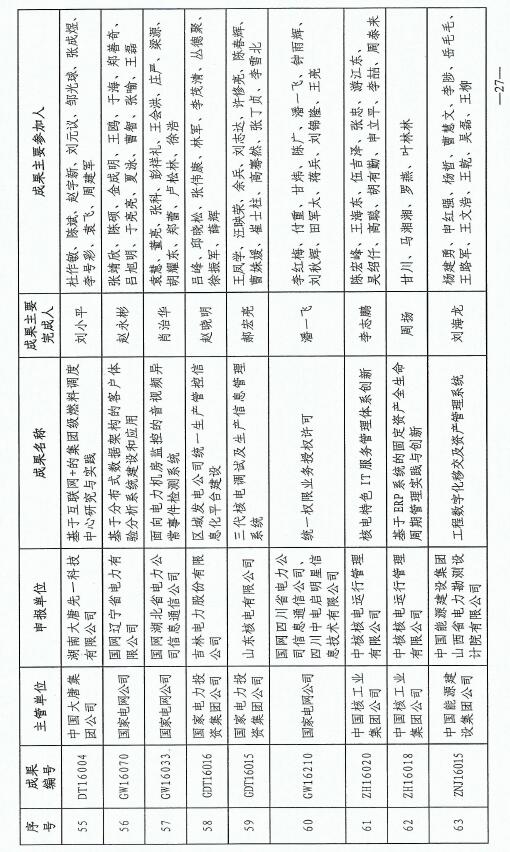 序号 成果编号 主管单位 申报单位 成果名称 成果主要完成人 成果主要参加人
55 DT16004 中国大唐集团公司 湖南大唐先一科技有限公司 基于互联网+的集团级燃料调度中心研究与实践 刘小平 杜作敏、陈斌、赵宇新、刘元议、邹光球、张成煜、李号彩、袁飞、周建军
56 GW16070 国家电网公司 国网辽宁省电力有限公司 基于分布式数据架构的客户体验分析系统建设和应用 赵永彬 张靖欣、陈硕、金成明、王鸥、于海、郑善奇、吕旭明、于亮亮、夏泳、曹智、张喻、王磊
57 GW16033 国家电网公司 国网湖北省电力公司信息通信公司 面向电力机房监控的音视频异常事件检测系统 肖治华 袁慧、董亮、张科、彭祥礼、王会洪、庄严、梁源、胡耀东、郑蕾、卢松林、徐浩
58 GDT16016 国家电力投资集团公司 吉林电力股份有限公司 区域发电公司统一生产管控信息化平台建设 赵晓明 吕峰、邱晓松、张伟康、林军、李茂清、丛德聚、徐振军、薛辉
59 GDT16015 国家电力投资集团公司 山东核电有限公司 三代核电调试及生产信息管理系统 郝宏亮 王凤学、汪映荣、余兵、刘志达、许修亮、陈春辉、曹姝媛、崔士柱、高骞然、张丁贞、李雪北
60 GW16210 国家电网公司 国网四川省电力公司信息通信公司、四川中电启明星信息技术有限公司 统一权限业务授权许可 潘一飞 李红梅、付重、甘炜、陈广、潘一飞、钟雨辉、刘秋辉、田军大、蒋兵、刘锦隆、王亮
61 ZH16020 中国核工业集团公司 中核核电运行管理有限公司 核电特色IT服务管理体系创新 李志鹏 陈宏峰、王海东、伍吉泽、张忠、游江东、吴绍仟、高聪、胡有勤、申立平、李喆、周泰来
62 ZH16018 中国核工业集团公司 中核核电运行管理有限公司 基于ERP系统的固定资产全生命周期管理实践与创新 周扬 甘川、马湘湘、罗燕、叶林林
63 ZNJ16015 中国能源建设集团公司 中国能源建设集团山西省电力勘测设计院有限公司 工程数字化移交及资产管理系统 刘海龙 杨建勇、申红强、杨哲、曹慧文、李陟、岳毛毛、王略军、王文浩、王乾、吴磊、王柳
—27—